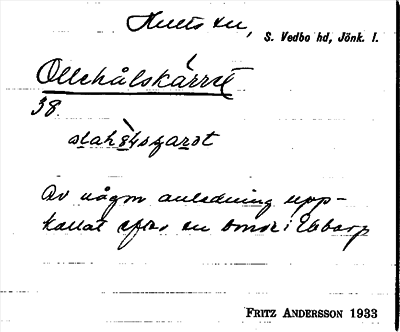 Hults sn, S. Vedbo hd, Jönk. l.
Ollehålskärret
38.
Av någon anledning upp-
kallat efter en bonde i Ebbarp
FRITZ ANDERSSON 1933